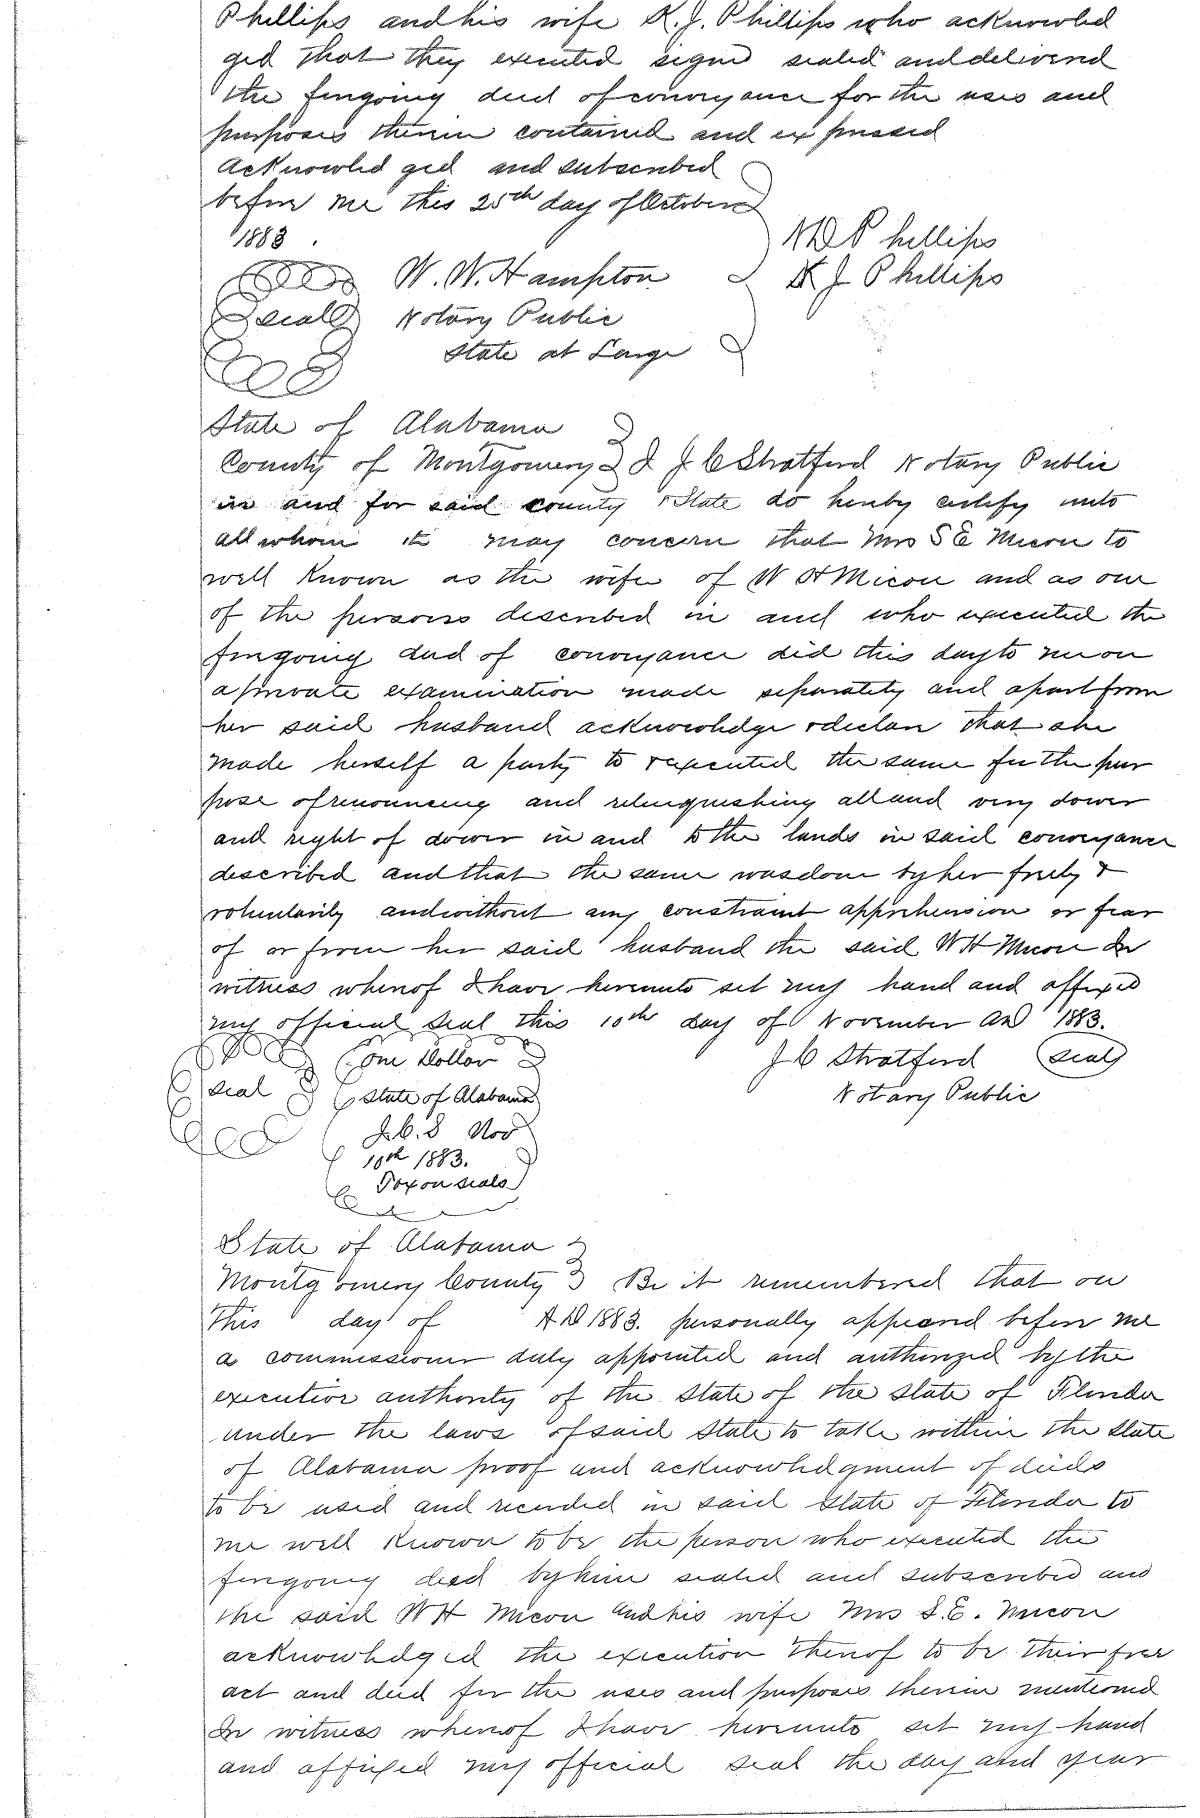 Phillips and his wife K. J. Phillips who acknowled
ged that they executed signed sealed and delivered
the foregoing deed of conveyance for the uses and
purposes therein contained and expressed
Acknowledged and subscribed
before me this 25th day of October
1883.
N D Phillips
W. W. Hampton
K J Phillips
seal
Notary Public
State at Large
State of Alabama
County of Montgomery I J C Stratford Notary Public
in and for said county & State do hereby certify unto
all whom it may concern that Mrs S E Micou to
well known as the wife of W H Micou and as one
of the persons described in and who executed the
foregoing deed of conveyance did this day to me on
a private examination made separately and apart from
her said husband acknowledge & declare that she
made herself a party to & executed the same for the pur
pose of renouncing and relinquishing all and every dower
and right of dower in and to the lands in said conveyance
described and that the same was done by her freely &
voluntarily and without any constraint apprehension or fear
of or from her said husband the said W H Micou In
witness whereof I have hereunto set my hand and affixed
my official seal this 10th day of November AD 1883.
One Dollar
J C Stratford seal
seal
State of Alabama
Notary Public
J. C. S Nov
10th 1883.
Tax on seals
State of Alabama
Montgomery County Be it remembered that on
this day of A D 1883. personally appeared before me
a commissioner duly appointed and authorized by the
executive authority of the State of the State of Florida
under the laws of said State to take within the State
of Alabama proof and acknowledgment of deeds
to be used and recorded in said State of Florida to
me well known to be the person who executed the
foregoing deed by him sealed and subscribed and
the said W H Micou and his wife Mrs S. E. Micou
acknowledged the execution thereof to be their free
act and deed for the uses and purposes therein mentioned
In witness whereof I have hereunto set my hand
and affixed my official seal the day and year